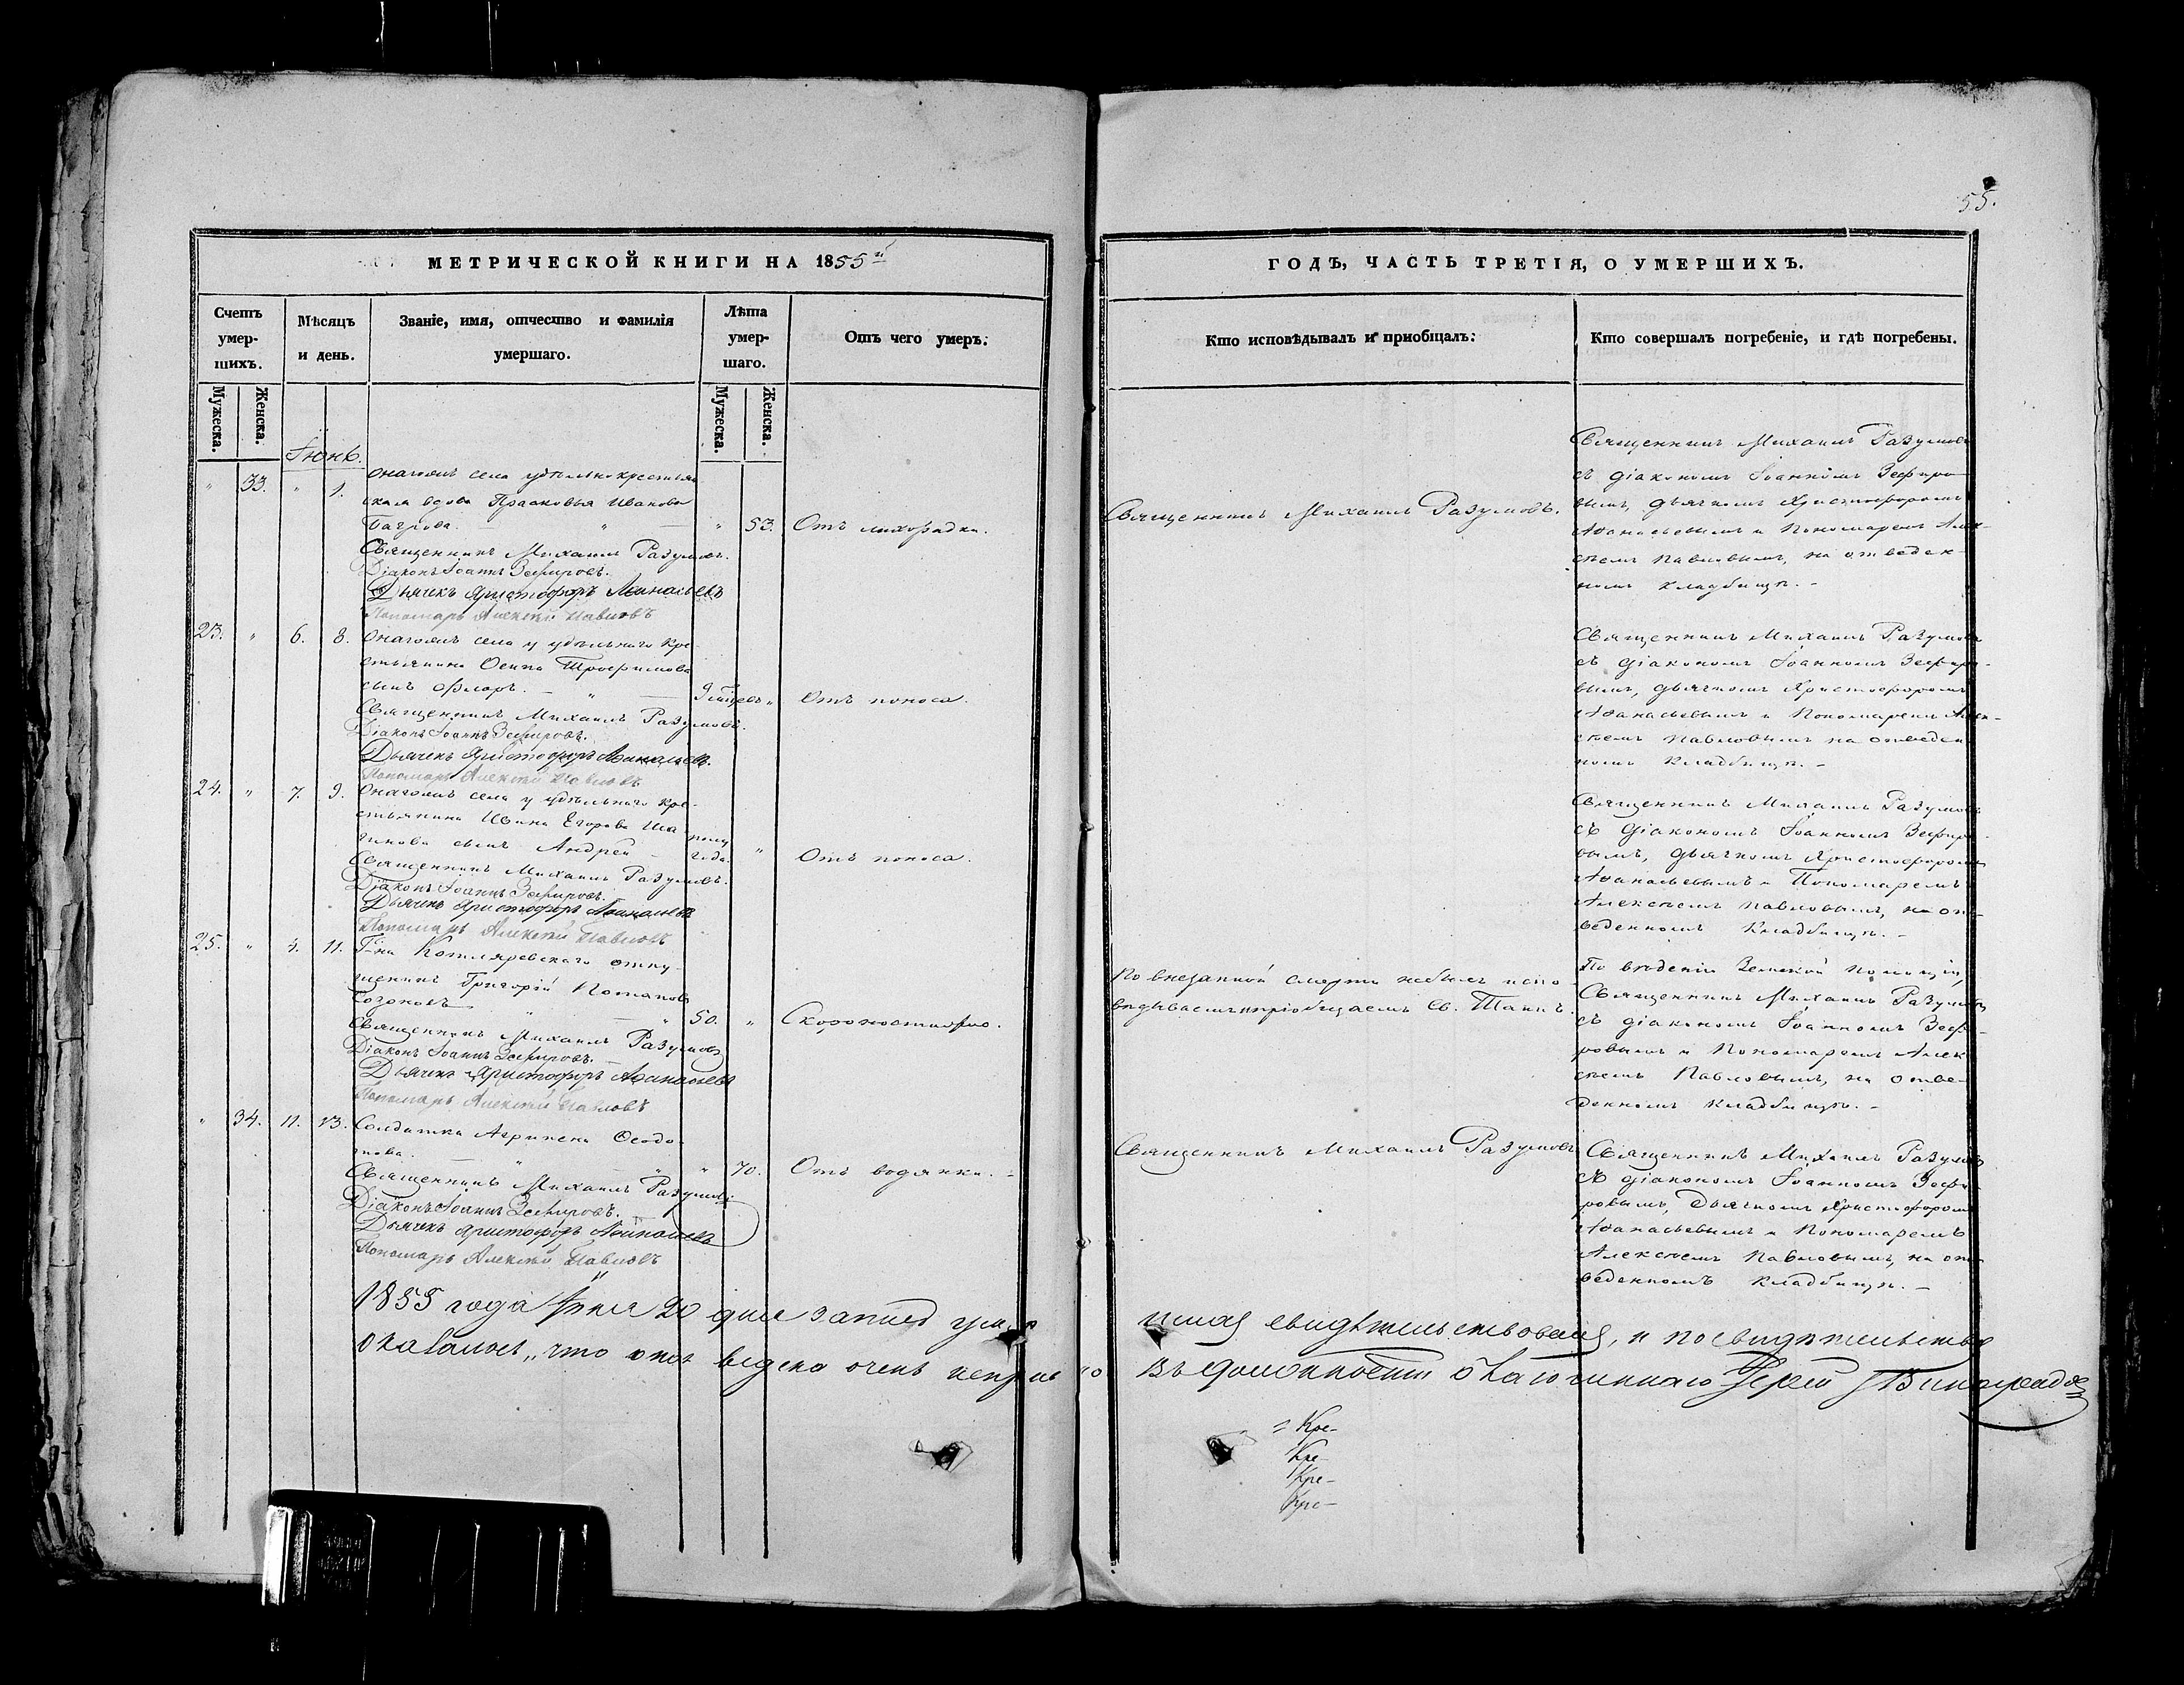 55.
МЕТРИЧЕСКОЙ КНИГИ НА 1855й
ГОДЪ, ЧАСТЬ ТРЕТІЯ, О УМЕРШИХЪ.
Счетъ умер-шихъ.
Мѣсяцъ и день.
Званіе, имя, отчество и фамилія умершаго.
Лѣта умер-шаго.
Отъ чего умеръ:
Кто исповѣдывалъ и пріобщалъ:
Кто совершалъ погребеніе, и гдѣ погребены.
Мужеска.
Женска.
Мужеска.
Женска.
Іюнь.
" 33. " 1.
села удѣльнокрестьян
ская вдова Прасковья Иванова
" 53. Отъ лихорадки.
Священникъ Михаилъ Разумовъ.
Діаконъ Іоаннъ Зефировъ.
Дьячекъ Христофоръ Аѳанасьевъ
Пономарь Алексѣй Павловъ
Священникъ Михаилъ Разумовъ.
Священникъ Михаилъ Разумовъ
съ діакономъ Іоанномъ Зефиро-
вымъ, дьячкомъ Христофоромъ
Аѳанасьевымъ и Пономаремъ Алек-
сѣемъ Павловымъ, на отведен-
номъ кладбищѣ. –
23. " 6. 8.
села у удѣльнаго кре-
стьянина Осипа Трофимова
сынъ Флоръ. – "
9 " Отъ поноса.
Священникъ Михаилъ Разумовъ.
Діаконъ Іоаннъ Зефировъ.
Дьячекъ Христофоръ Аѳанасьевъ.
Пономарь Алексѣй Павловъ
Священникъ Михаилъ Разумовъ
съ діакономъ Іоанномъ Зефиро-
вымъ, дьячкомъ Христофоромъ
Аѳанасьевымъ и Пономаремъ Алек-
сѣемъ Павловымъ на отведен
номъ Кладбищѣ. –
24. " 7. 9.
села у удѣльнаго кре-
стьянина Ивана Егорова
сынъ Андрей –
полу
года. " Отъ поноса.
Священникъ Михаилъ Разумовъ.
Діаконъ Іоаннъ Зефировъ.
Дьячекъ Христофоръ Аѳанасьевъ
Пономарь Алексѣй Павловъ
Священникъ Михаилъ Разумовъ
съ діакономъ Іоанномъ Зефиро
вымъ, дьячкомъ Христофоромъ
Аѳанасьевымъ и Пономаремъ
Алексѣемъ Павловымъ, на от-
веденномъ Кладбищѣ. –
25. " 11.
Г-на Котляревскаго отпу-
щенникъ Григорій Потаповъ
50. " Скоропостижно.
Священникъ Михаилъ Разумовъ
Діаконъ Іоаннъ Зефировъ.
Дьячекъ Христофоръ Аѳанасьевъ
Пономарь Алексѣй Павловъ
По внезапной смерти небылъ испо-
вѣдываемъ и пріобщаемъ Св. Таинъ.
По Земской Полиціи,
Священникъ Михаилъ Разумовъ
съ діакономъ Іоанномъ Зефи-
ровымъ и Пономаремъ Алек
сѣемъ Павловымъ, на отве-
денномъ кладбищѣ. –
" 34. 11. 13.
Солдатка Агрипена Ѳедо-
" 70. Отъ водянки. –
Священникъ Михаилъ Разумовъ
Діаконъ Іоаннъ Зефировъ.
Дьячекъ Христофоръ Аѳанасьевъ
Пономарь Алексѣй Павловъ
Священникъ Михаилъ Разумовъ
Священникъ Михаилъ Разумовъ
съ діакономъ Іоанномъ Зефи
ровымъ, Дьячкомъ Христофоромъ
Аѳанасьевымъ и Пономаремъ
Алексѣемъ Павловымъ, на от-
веденномъ кладбищѣ. –
1855 года Іюня 20 дня свидѣтельствована, и по свидѣтельству
оказалось, что она ведена очень Въ должности благочиннаго Іерей Виноградовъ
Кре-
Кре-
Кре-
Кре-